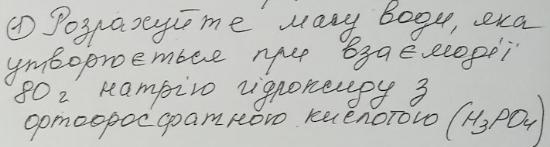 ① Розрахуйте масу води, яка
утворюється при взаємодії
80 г натрію гідроксиду з
ортофосфатною кислотою (H₃PO₄)